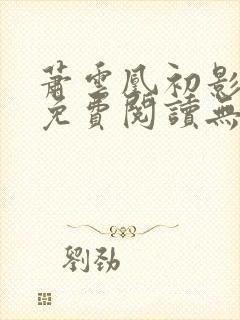 蕭雲凰初影
免費閱讀無
劉勁